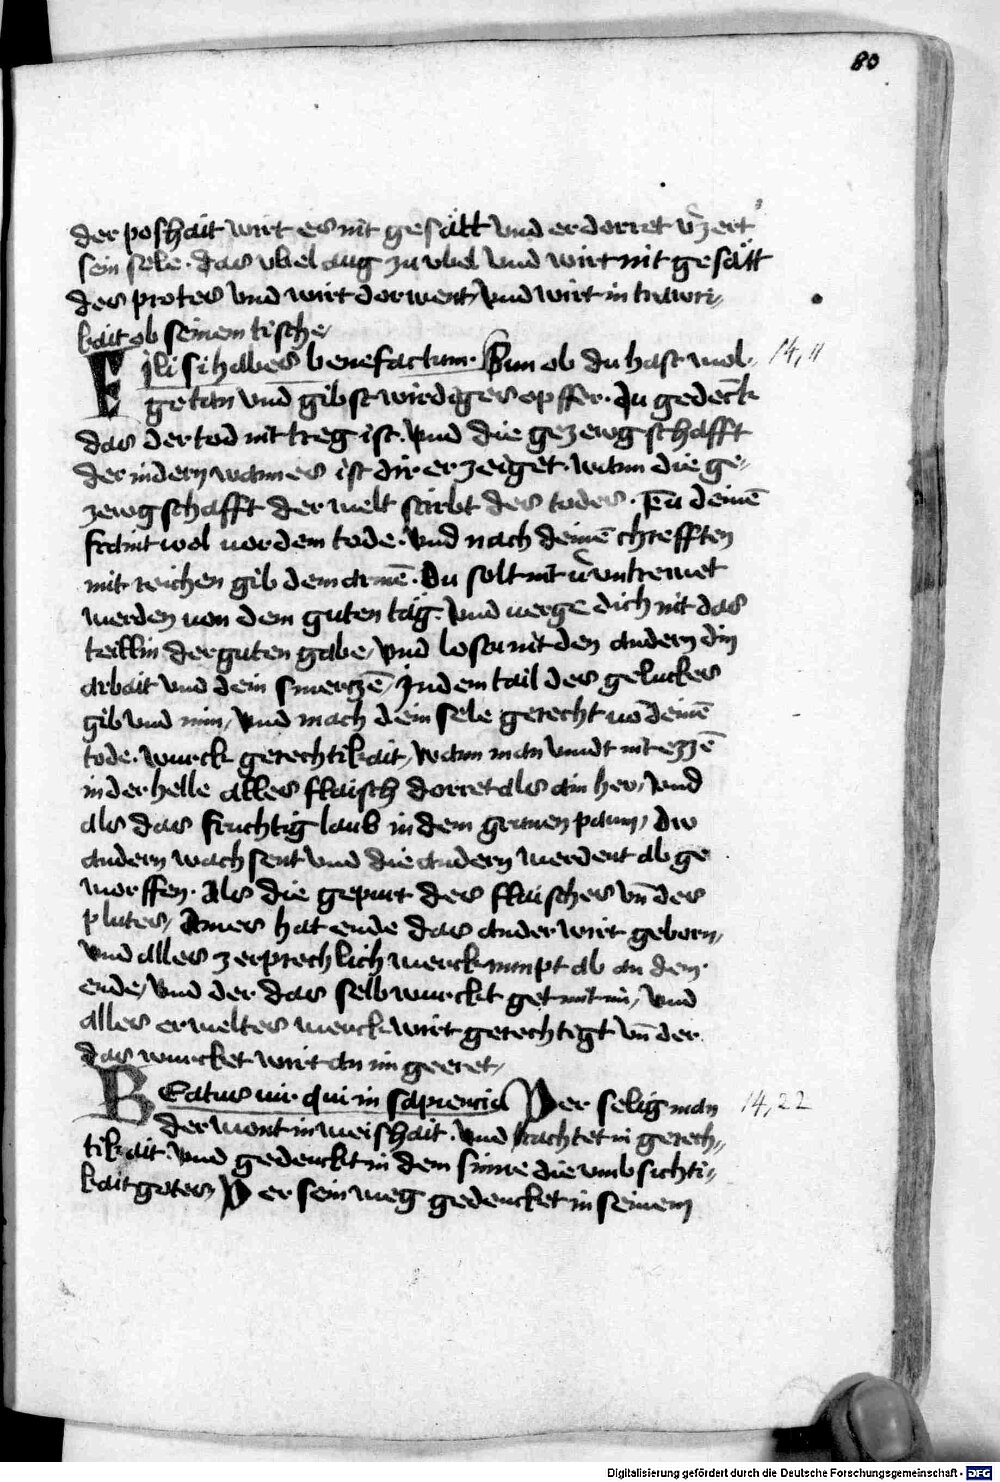 80
der poshait wirt es nit gesätt vnd erdorret v̈zert
sein sele. das vbel aug zu vbel vnd wirt nit gesätt
des protes vnd wirt dorwent, vnd wirt in trawri,
kait ob seinem tische,
Fili si habes benefactum. Sun ob du hast wol- 14, 11
getan vnd gibst wirdiges opffer. du gedenck
das der tod nit treg ist. vnd die gezewgschafft
der nidern wann es ist dir erzeiget. wann die ge-
zewgschafft der welt stirbt des todes. Tu deinē
fraint wol vor dem tode. vnd nach deinē chrefften
mit reichen gib dem armē. Du solt nit v̈ntrewet
werden von dem guten tag. vnd verge dich nit das
teillin der guten gabe, vnd losa nit den andern din
arbait vnd dein smerczē, In dem tail des geluckes
gib vnd nim, vnd mach dein sele gerecht vō deinē
tode. wurck gerechtikait, wann man vindt nit ezzē
in der helle alles flaisch dorret als ain hew, vnd
als das fruchtig laub in dem grunen paum, Diw
andern wachsent vnd die andern werdent ab ge
worffen. Als die gepurt des flaisches vn̄ des
plutes, Aines hat ende das ander wirt geborn,
vnd alles zerprechlich werck nimpt ab an dem
ende, vnd der das selb wurckt get mit im, vnd
alles erweltes werck wirt gerechtigt vn̄ der
das wurcket wirt an im geeret,
BEatus uir qui in sapiencia Der selig man 14, 22
der wont in weishait. vnd trachtet in gerech-
tikait. vnd gedenckt in dem sinne die vmbsichti-
kait gotes, Der sein weg gedencket in seinem
Digitalisierung gefördert durch die Deutsche Forschungsgemeinschaft - DFG